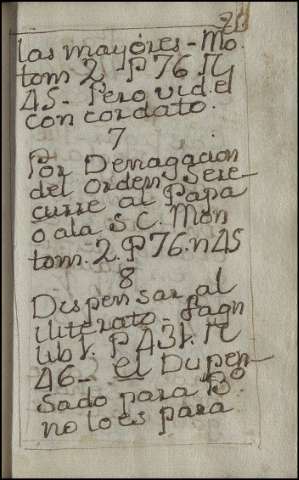 las mayores - Mo.
tom 2. P 76. N
45 - Pero vid. el
concordato.
7
Por Denagacion
del Orden Sere-
curre al Papa
o ala S. C. Mon
tom. 2. P 76. n 45
8
Dispensar al
iliterato - fagn
lib 1. P 431. N
46 - el Dispen-
sado para Bº
no loes para